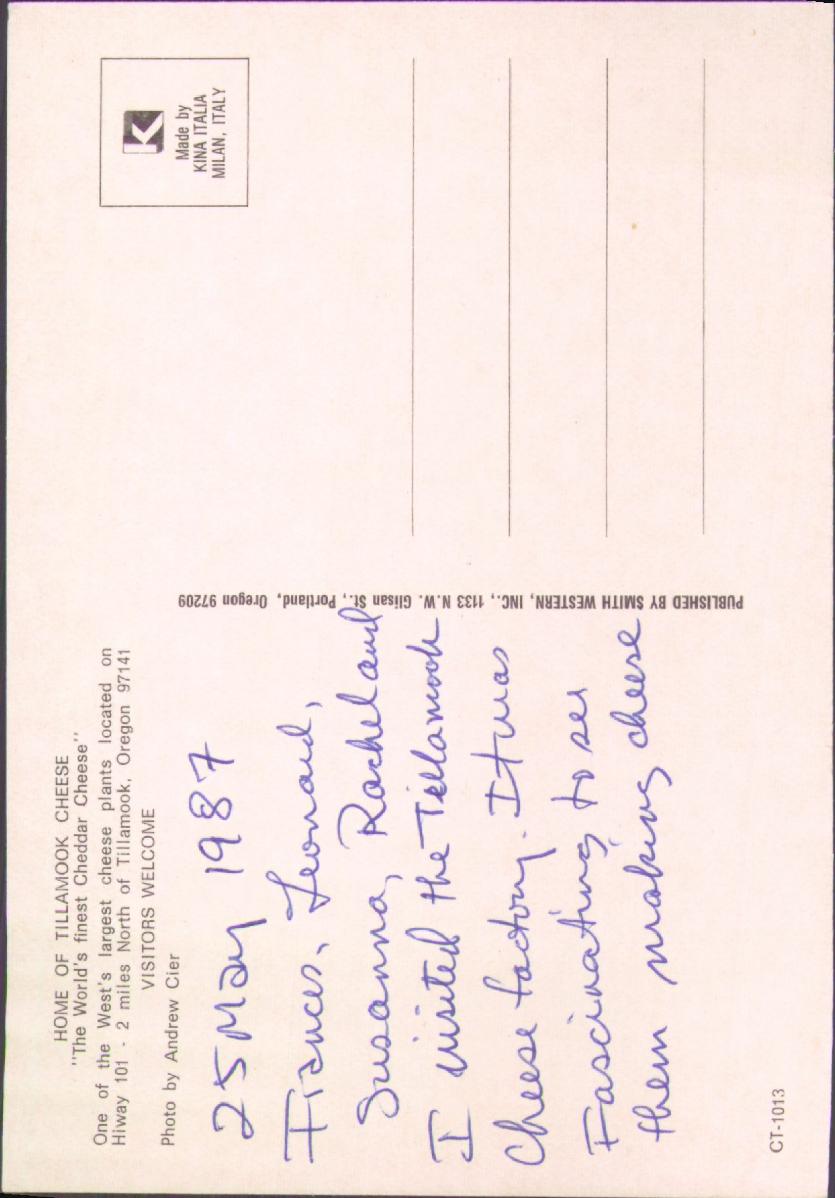 HOME OF TILLAMOOK CHEESE
"The World's finest Cheddar Cheese"
One of the West's largest cheese plants located on
Hiway 101 - 2 miles North of Tillamook, Oregon 97141
VISITORS WELCOME
Photo by Andrew Cier
25 May 1987
Frances, Leonard,
Susanna, Rachel and
I visited the Tellamook
Cheese factory. It was
Fascinating to see
them making cheese
CT-1013
PUBLISHED BY SMITH WESTERN, INC., 1133 N.W. Glisan St., Portland, Oregon 97209
K
Made by
KINA ITALIA
MILAN, ITALY